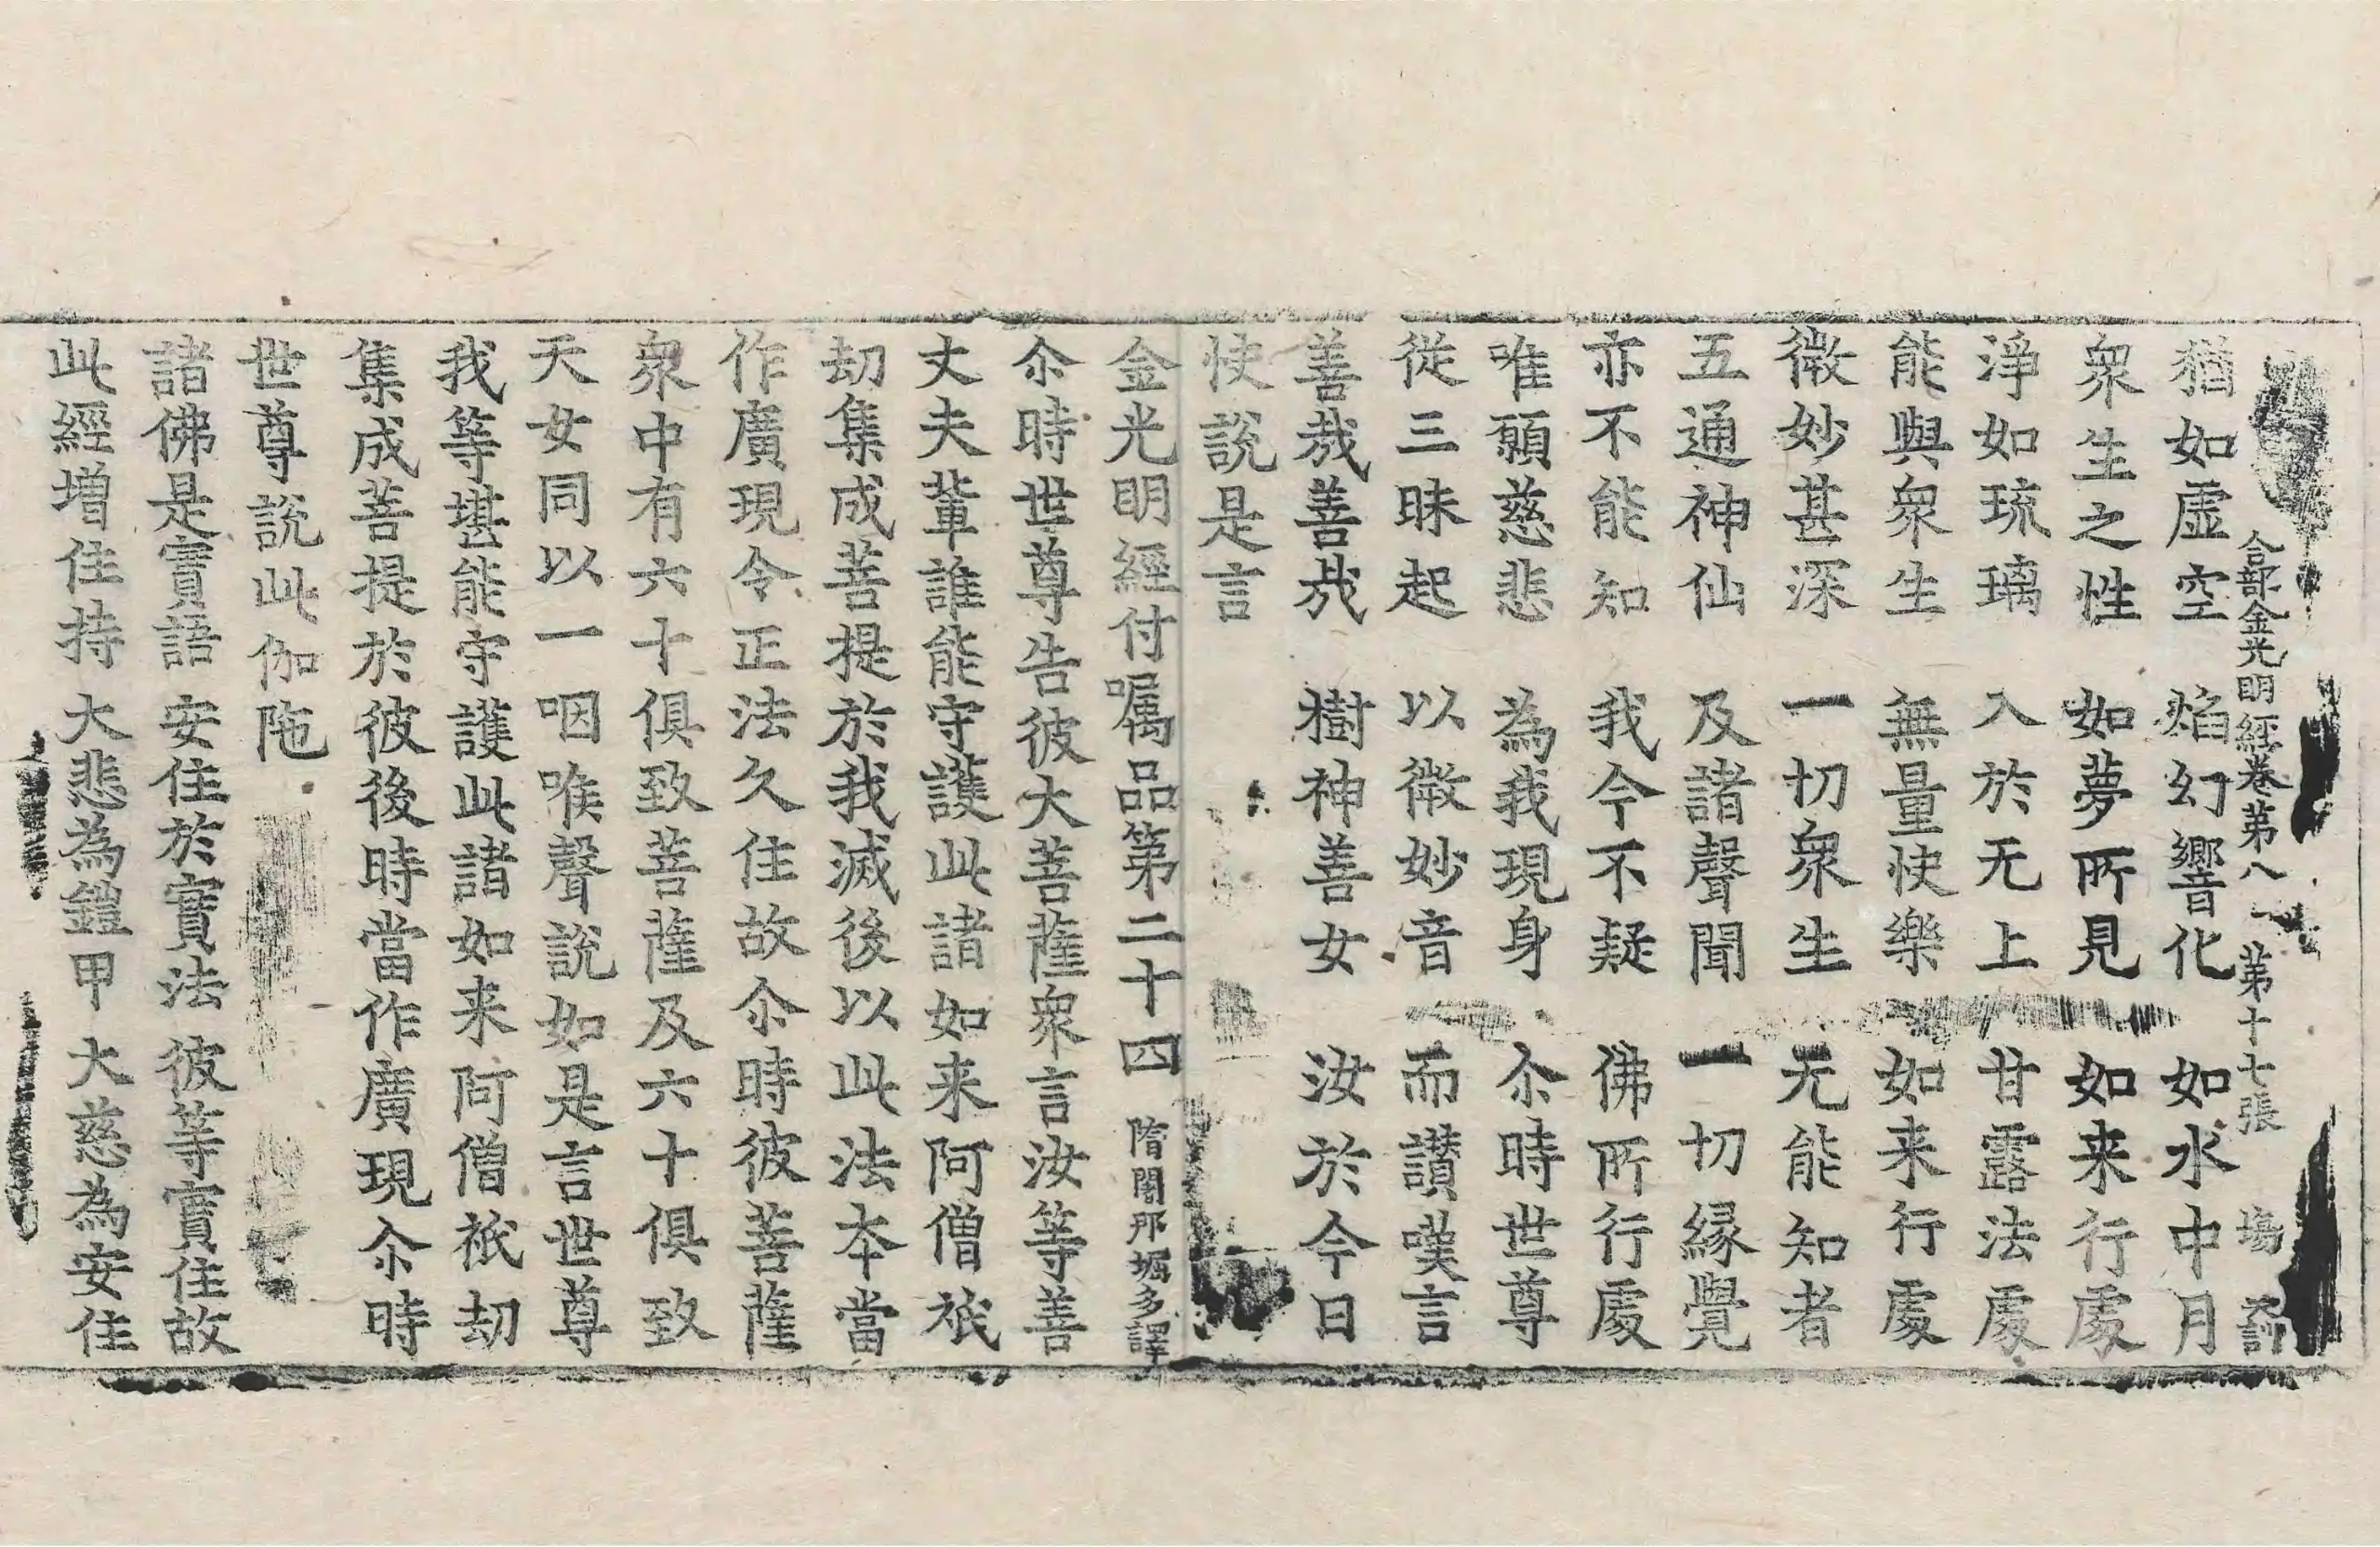 合部金光明經卷第八 第十七張 塲
猶如虛空 焰幻響化 如水中月
衆生之性 如夢所見 如来行處
淨如琉璃 入於无上 甘露法處
能與衆生 無量快樂 如来行處
微妙甚深 一切衆生 无能知者
五通神仙 及諸聲聞 一切縁覺
亦不能知 我今不疑 佛所行處
唯願慈悲 為我現身 尒時世尊
從三昧起 以微妙音 而讃嘆言
善哉善哉 樹神善女 汝於今日
快說是言
金光明經付嘱品第二十四 隋闍那堀多譯
尒時世尊告彼大菩薩衆言汝等善
丈夫輩誰能守護此諸如来阿僧祇
劫集成菩提於我滅後以此法夲當
作廣現令正法久住故尒時彼菩薩
衆中有六十俱致菩薩及六十俱致
天女同以一咽喉聲說如是言世尊
我等堪能守護此諸如来阿僧祇劫
集成菩提於彼後時當作廣現尒時
世尊說此伽陁
諸佛是實語 安住於實法 彼等實住故
此經增住持 大悲為鎧甲 大慈為安住